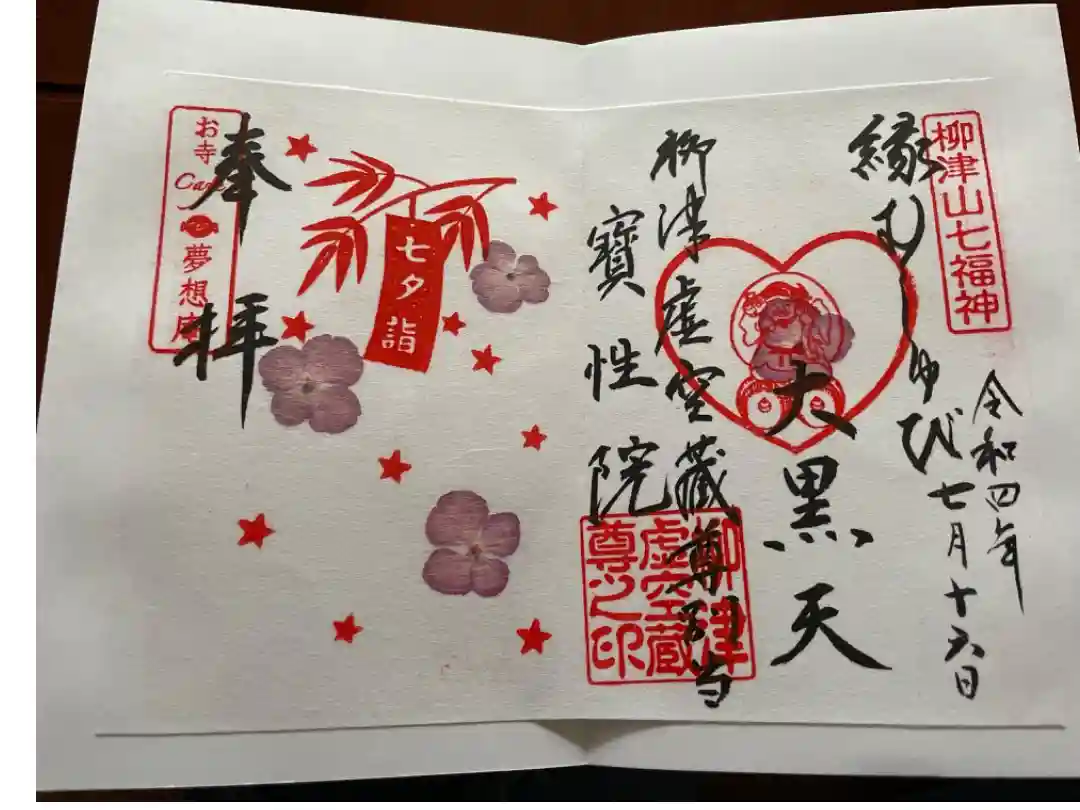 柳津山七福神
令和四年
七月十六日
縁むすび
大黒天
柳津虚空藏尊別当
寶性院
柳津
虚空蔵
尊之印
七夕詣
奉拝
お寺
Cafe
夢想庵